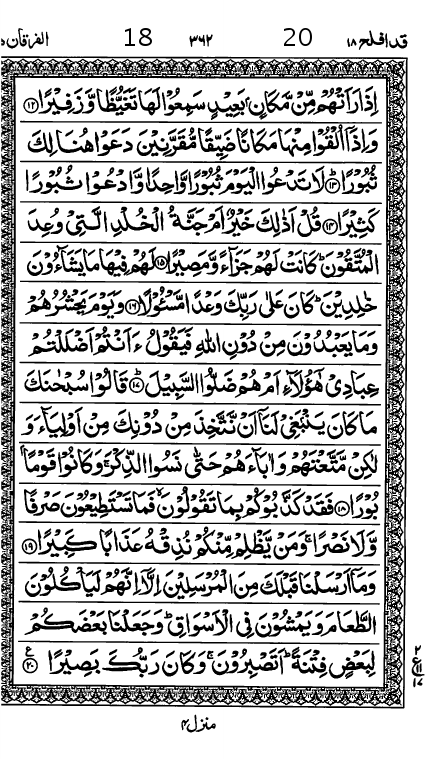 قد افلح ۱۸ 20 ۳۶۲ 18 الفرقان
اِذَا رَاَتْهُمْ مِّنْ مَّكَانٍۭ بَعِيْدٍ سَمِعُوْا لَهَا تَغَيُّظًا وَّزَفِيْرًا ﴿۱۲﴾
وَاِذَاۤ اُلْقُوْا مِنْهَا مَكَانًا ضَيِّقًا مُّقَرَّنِيْنَ دَعَوْا هُنَالِكَ
ثُبُوْرًا ﴿۱۳﴾ لَا تَدْعُوا الْيَوْمَ ثُبُوْرًا وَّاحِدًا وَّادْعُوْا ثُبُوْرًا
كَثِيْرًا ﴿۱۴﴾ قُلْ اَذٰلِكَ خَيْرٌ اَمْ جَنَّةُ الْخُلْدِ الَّتِيْ وُعِدَ
الْمُتَّقُوْنَ ؕ كَانَتْ لَهُمْ جَزَآءً وَّمَصِيْرًا ﴿۱۵﴾ لَهُمْ فِيْهَا مَا يَشَآءُوْنَ
خٰلِدِيْنَ ؕ كَانَ عَلٰى رَبِّكَ وَعْدًا مَّسْـُٔوْلًا ﴿۱۶﴾ وَيَوْمَ يَحْشُرُهُمْ
وَمَا يَعْبُدُوْنَ مِنْ دُوْنِ اللّٰهِ فَيَقُوْلُ ءَاَنْتُمْ اَضْلَلْتُمْ
عِبَادِيْ هٰۤؤُلَآءِ اَمْ هُمْ ضَلُّوا السَّبِيْلَ ﴿۱۷﴾ قَالُوْا سُبْحٰنَكَ
مَا كَانَ يَنْۢبَغِيْ لَنَاۤ اَنْ نَّتَّخِذَ مِنْ دُوْنِكَ مِنْ اَوْلِيَآءَ وَ
لٰكِنْ مَّتَّعْتَهُمْ وَاٰبَآءَهُمْ حَتّٰى نَسُوا الذِّكْرَ ۚ وَكَانُوْا قَوْمًۢا
بُوْرًا ﴿۱۸﴾ فَقَدْ كَذَّبُوْكُمْ بِمَا تَقُوْلُوْنَ ۙ فَمَا تَسْتَطِيْعُوْنَ صَرْفًا
وَّلَا نَصْرًا ۚ وَمَنْ يَّظْلِمْ مِّنْكُمْ نُذِقْهُ عَذَابًا كَبِيْرًا ﴿۱۹﴾
وَمَاۤ اَرْسَلْنَا قَبْلَكَ مِنَ الْمُرْسَلِيْنَ اِلَّاۤ اِنَّهُمْ لَيَاْكُلُوْنَ
الطَّعَامَ وَيَمْشُوْنَ فِي الْاَسْوَاقِ ؕ وَجَعَلْنَا بَعْضَكُمْ
لِبَعْضٍ فِتْنَةً ؕ اَتَصْبِرُوْنَ ۚ وَكَانَ رَبُّكَ بَصِيْرًا ﴿۲۰﴾ ع
منزل ۴